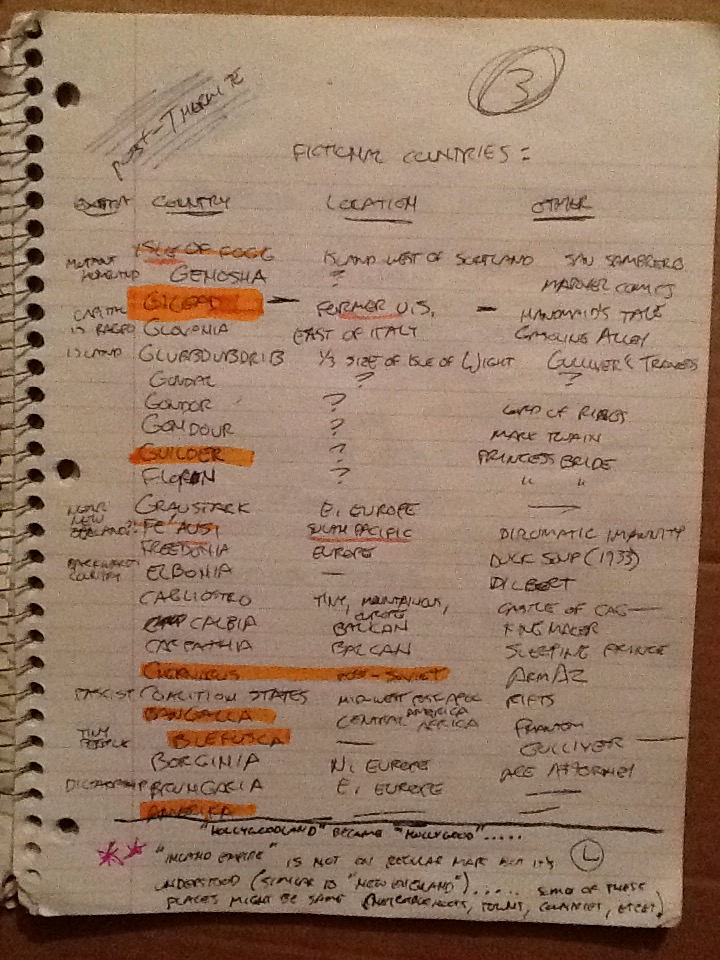 3
POST-THERMITE
FICTIONAL COUNTRIES:
EXTRA COUNTRY LOCATION OTHER
ISLE OF FOGG ISLAND WEST OF SCOTLAND SAN SOMBRERO
MUTANT HOMELAND GENOSHA ? MARVEL COMICS
GILEAD — FORMER U.S. — HANDMAID'S TALE
CAPITAL IS RAGED GLOVONIA EAST OF ITALY GASOLINE ALLEY
ISLAND GLUBBDUBDRIB 1/3 SIZE OF ISLE OF WIGHT GULLIVER'S TRAVELS
GONDAL ? ?
GONDOR ? LORD OF RINGS
GONDOUR ? MARK TWAIN
GUILDER ? PRINCESS BRIDE
FLORIN ? " "
GRAUSTARK E. EUROPE —
NEAR NEW ZEALAND? FE'AUSI SOUTH PACIFIC DIPLOMATIC IMMUNITY
FREEDONIA EUROPE DUCK SOUP (1933)
BACKWARDS COUNTRY ELBONIA — DILBERT
CAGLIOSTRO TINY, MOUNTAINOUS, EUROPE CASTLE OF CAG—
CALBIA BALKAN KING MAKER
CARPATHIA BALCAN SLEEPING PRINCE
CHERNARUS POST-SOVIET ARMA2
FASCIST COALITION STATES MIDWEST POST-APOC AMERICA RIFTS
BANGALLA CENTRAL AFRICA PHANTOM
TINY PEOPLE BLEFUSCA — GULLIVER —
BORGINIA N. EUROPE ACE ATTORNEY
DICTATORSHIP BRUNGARIA E. EUROPE —
AMERIKA — —
"HOLLYWOODLAND" BECAME "HOLLYWOOD".....
** "INLAND EMPIRE" IS NOT ON REGULAR MAP BUT IT'S L
UNDERSTOOD (SIMILAR TO "NEW ENGLAND")..... SOME OF THESE
PLACES MIGHT BE SAME (NEIGHBORHOODS, TOWNS, COUNTIES, ETC.)